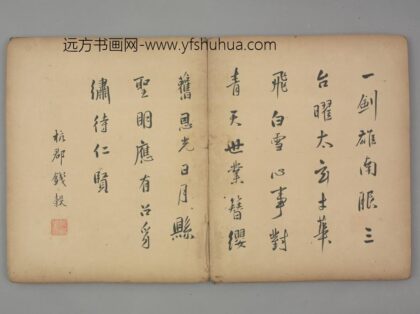 远方书画网-www.yfshuhua.com
一劍雄南服三
台曜太玄才華
飛白雪心事對
青天世業簪纓
舊恩光日月縣
聖明應有召豸
繡待仁賢
杭郡錢